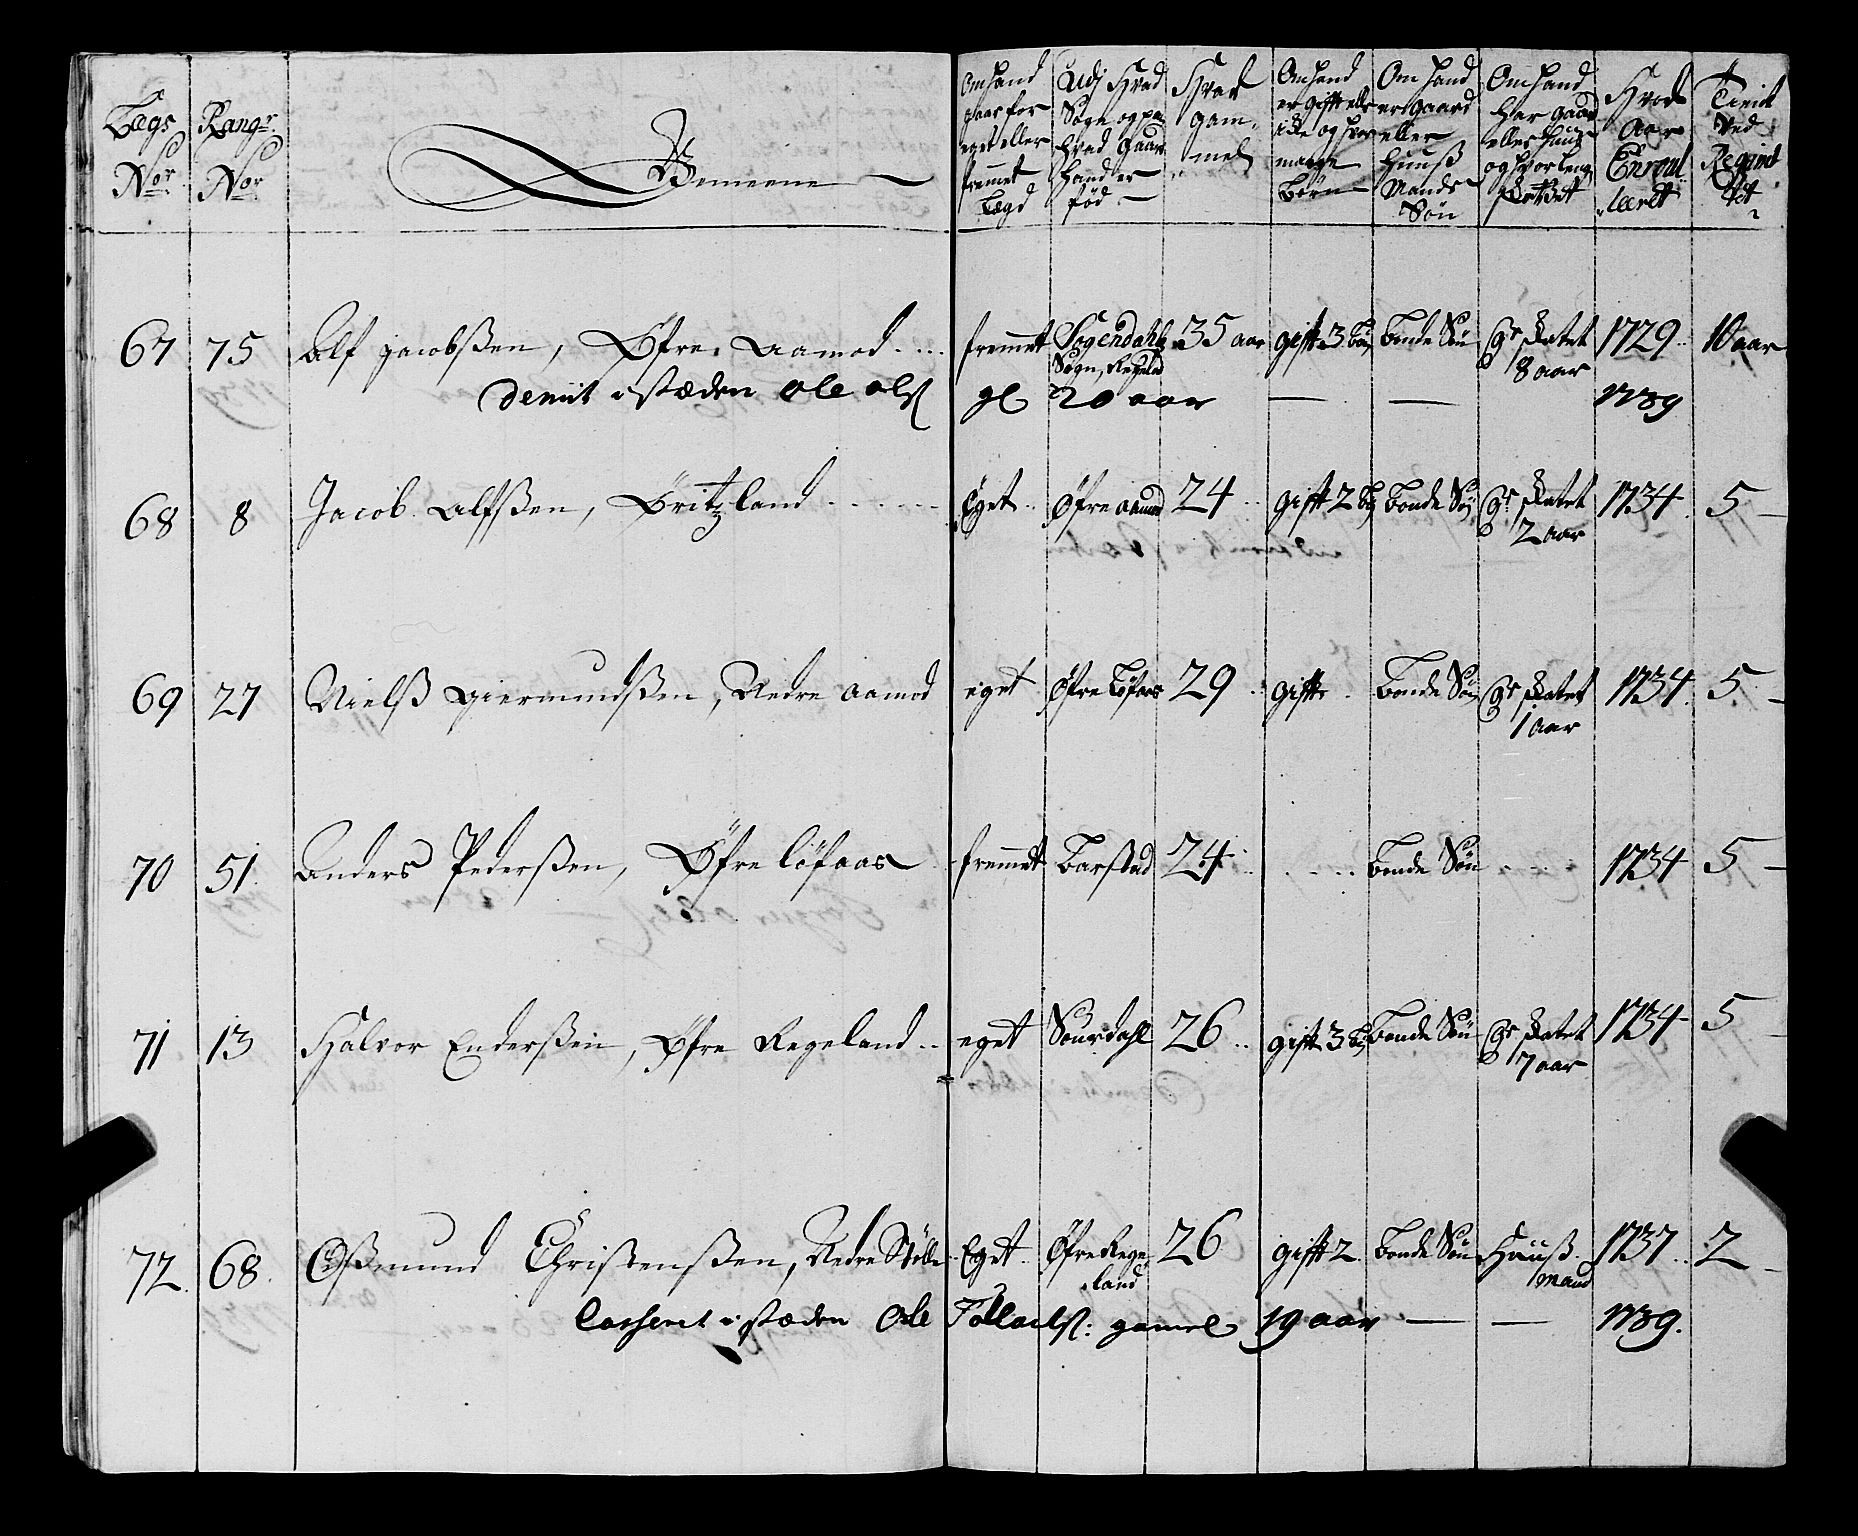 Lægs Nor
Rangs Nor
Gemeene
Om hand gaar for eget eller fremmet Lægd
Udj Hvad Sogn og paa hvad Gaard Hand er fød
Hvor gammel
Om hand er gifft eller icke og hvor mange Børn
Om hand er gaard eller Huuß Mands Søn
Om hand har gaard eller huus og hvor længe skattet
Hvad Aar Enroulleerett
Tient ved Regimtet
67 75 Alf Jacobßen, Øfre Aamod fremmet Sogendahls Sogn, Regeland 35 aar gifft 3 bø Bonde Søn Gr skatet 8 aar 1729 10 aar
Demit i stæden Ole Olß gl 20 aar — — 1739
68 8 Jacob Alfßen, Øritzland Eget Øfre aamod 24 gifft 2 bø Bonde Søn Gr skatet 2 aar 1734 5 —
69 27 Nielß Giermundßen, Nedre Aamod eget Øfre Løfaas 29 giffte Bonde Søn Gr skatet 1 aar 1734 5 —
70 51 Anders Pederßen, Øfre Løfaas fremmet Barstad 24 Bonde Søn 1734 5 —
71 13 Halvor Enderßen, Øfre Regeland eget Suurdahl 26 gifft 3 bø Bonde Søn Gr skatet 7 aar 1734 5 —
72 68 Oßmund Christenßen, Nedre Stølle Eget Øfre Regeland 26 gifft 2 Bonde Søn Huuß mand 1737 2 —
Casseret i stæden Ole Tollachß: gamel 19 aar — — 1739.